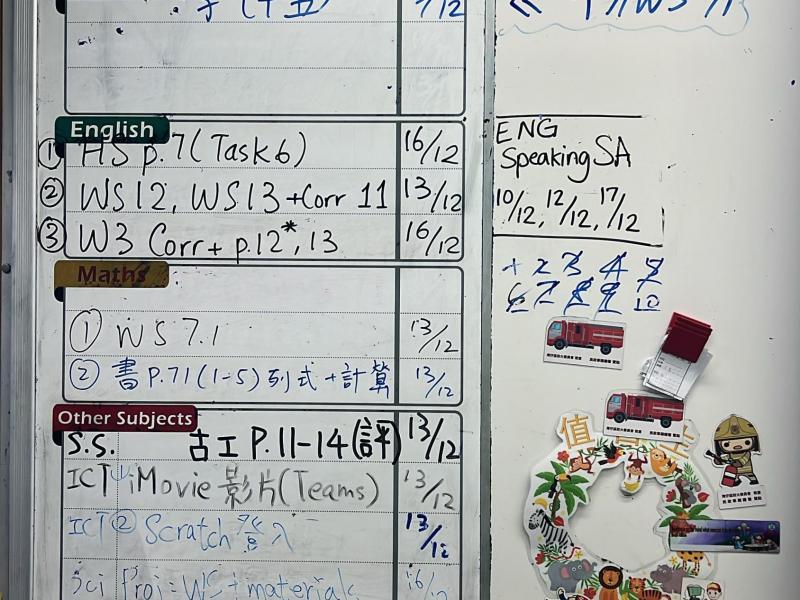 English
① HS p.7 (Task 6) 16/12
② WS 12, WS 13 + Corr 11 13/12
③ W3 Corr + p.12*, 13 16/12
Maths
① WS 7.1 13/12
② 書 P.71 (1-5) 列式 + 計算 13/12
Other Subjects
S.S. 古工 P.11-14 (評) 13/12
ICT ① iMovie 影片 (Teams) 13/12
ICT ② Scratch 登入 13/12
Sci Proj: WS + materials 16/12
ENG
Speaking SA
10/12, 12/12, 17/12
2 3 4 5
6 7 8 9 10
值